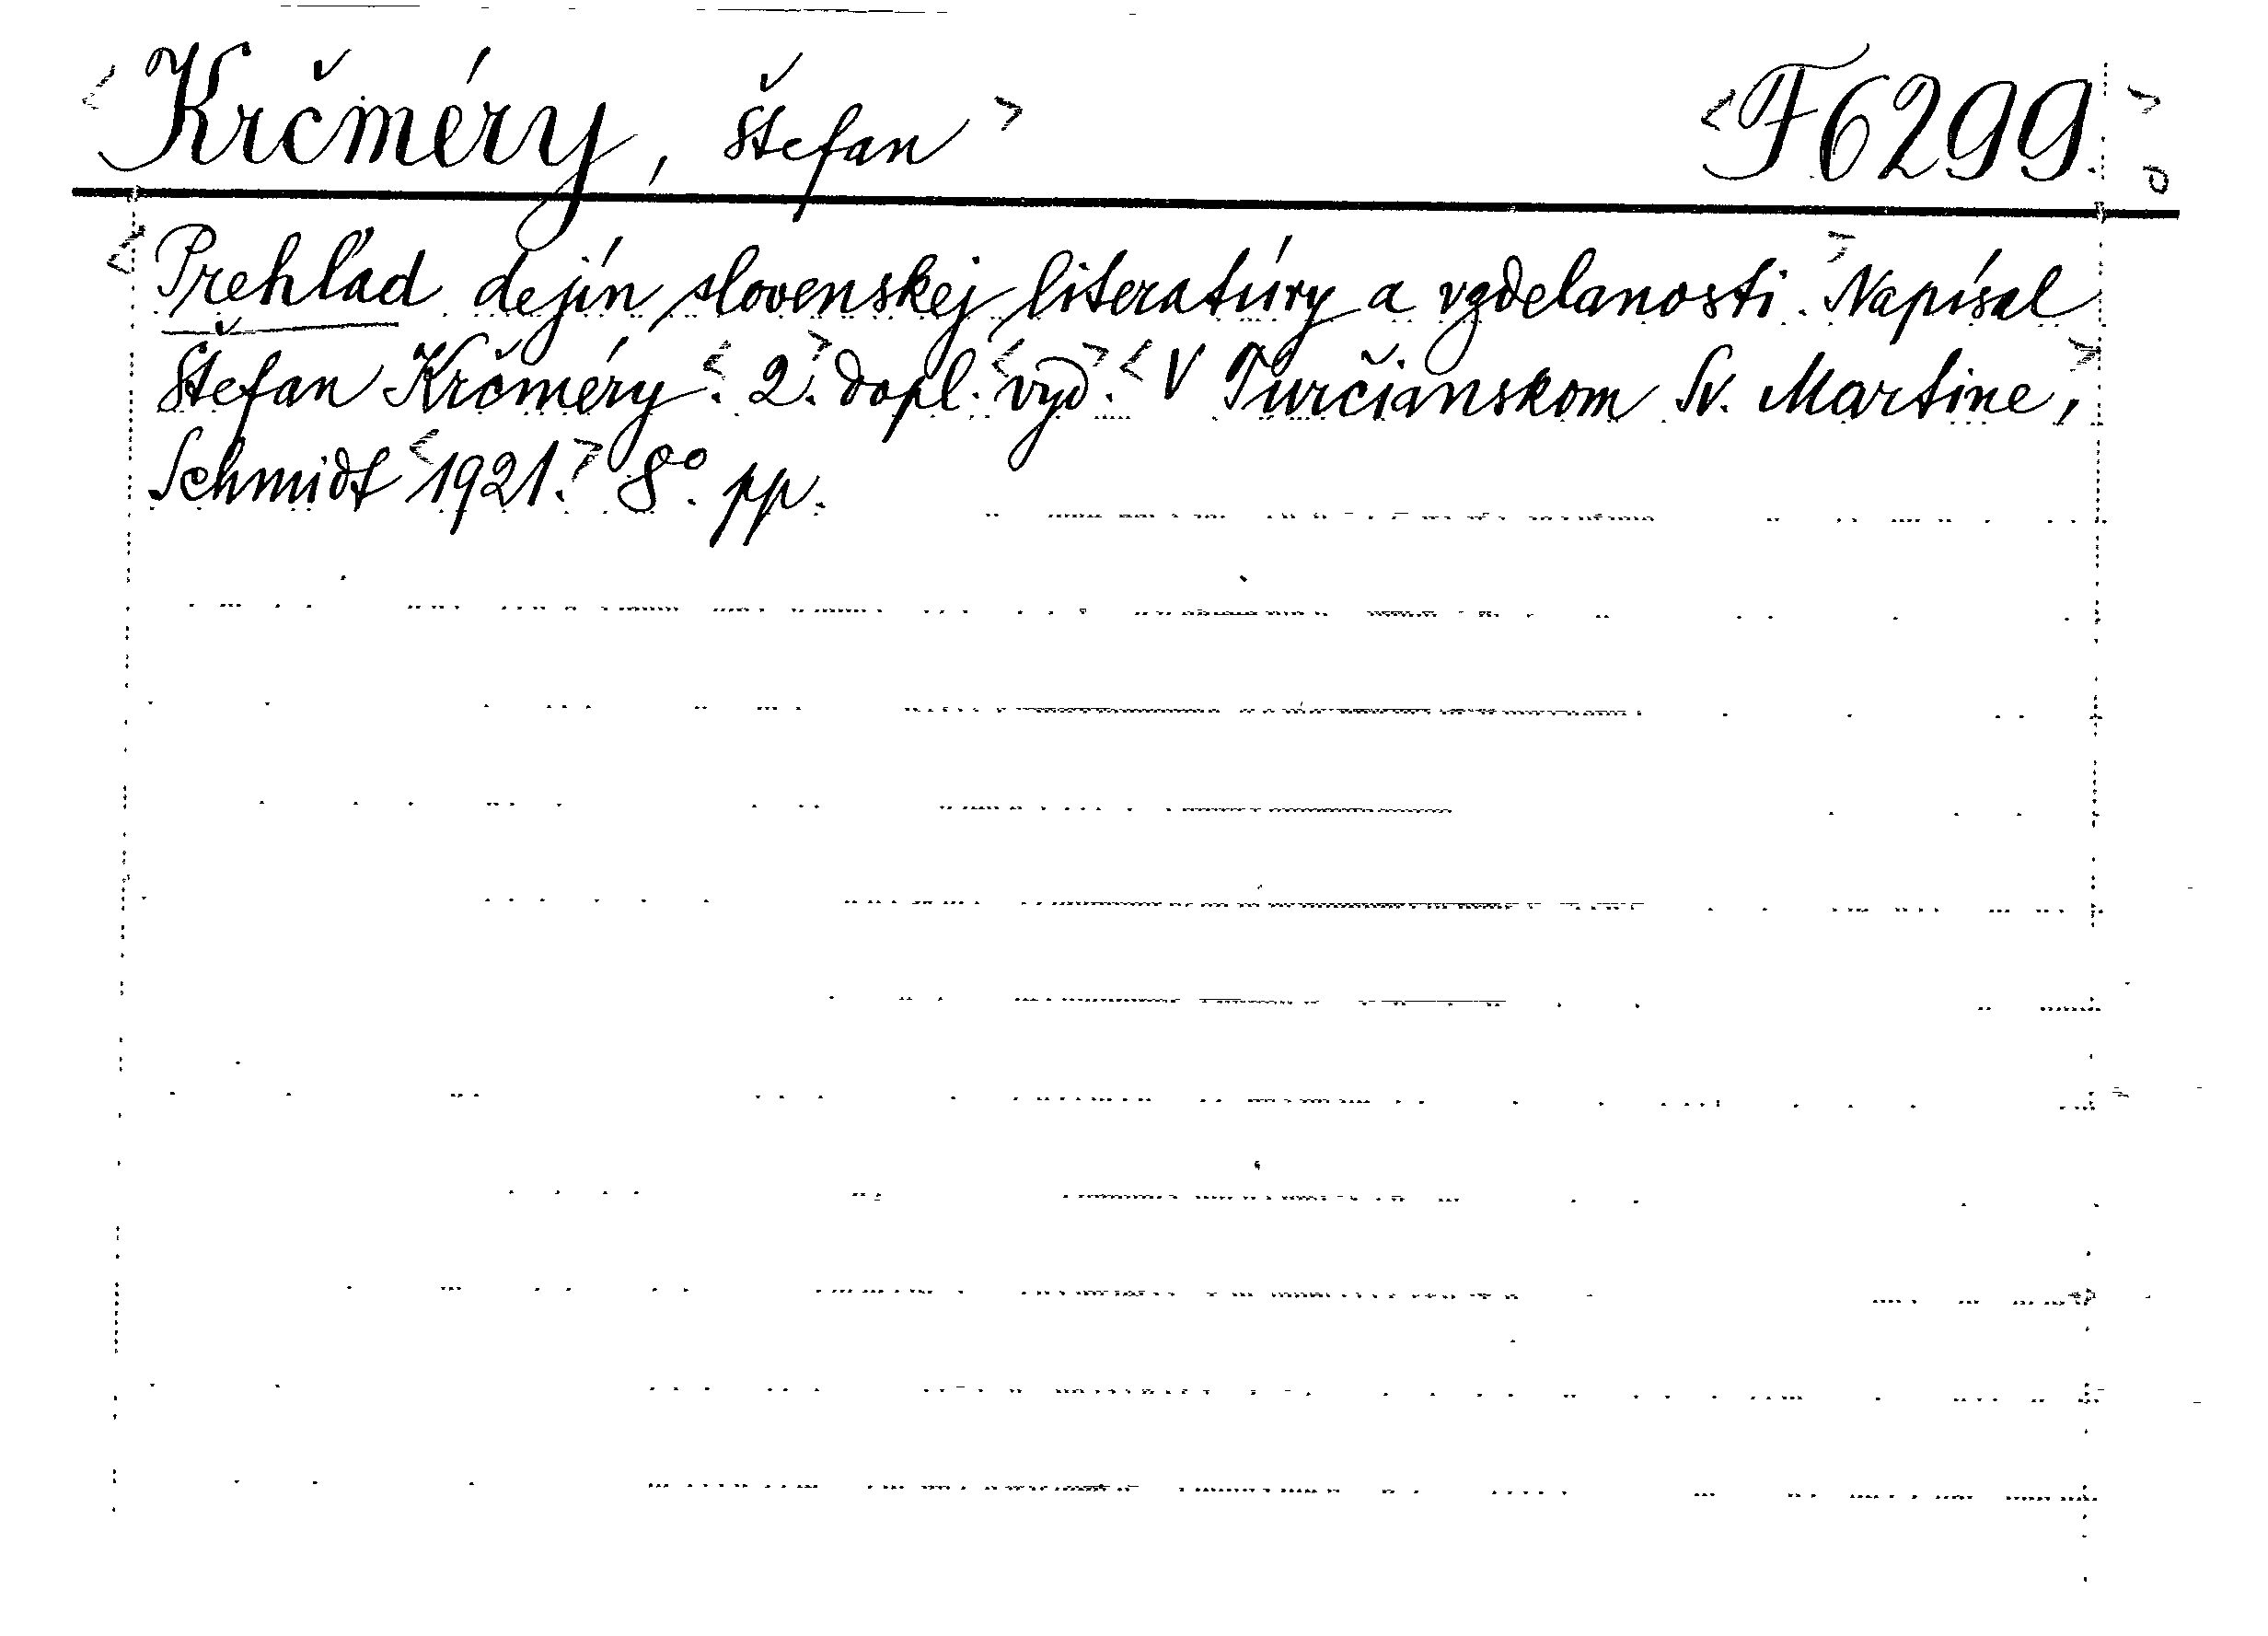 <Krčméry, Štefan> <F 6299.>
<Prehľad dejín slovenskej literatúry a vzdelanosti.> Napísal
Štefan Krčméry<. 2.> dopl. <vyd.> <V Turčianskom Sv. Martine,>
Schmidt <1921.> 8°. pp.